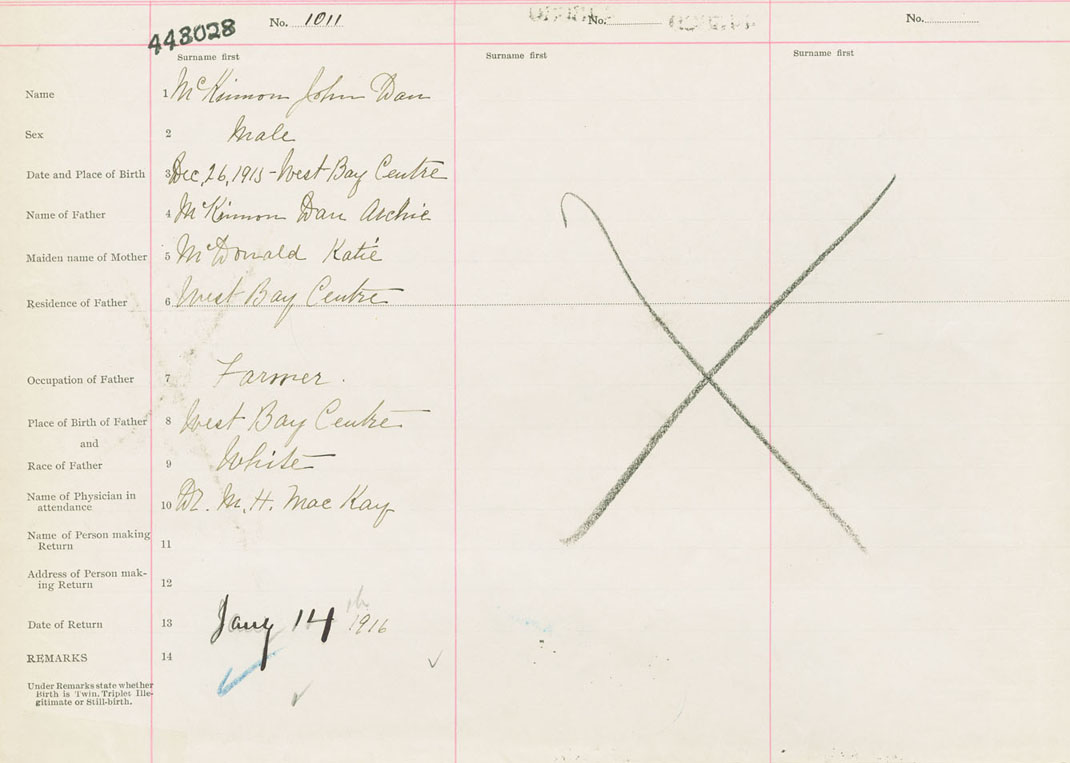 443028
No. 1011 No. No.
Surname first Surname first Surname first
Name 1 McKinnon John Dan
Sex 2 Male
Date and Place of Birth 3 Dec, 26, 1915 - West Bay Centre
Name of Father 4 McKinnon Dan Archie
Maiden name of Mother 5 McDonald Katie
Residence of Father 6 West Bay Centre
Occupation of Father 7 Farmer.
Place of Birth of Father 8 West Bay Centre
and
Race of Father 9 White
Name of Physician in
attendance 10 Dr. M. H. MacKay
Name of Person making
Return 11
Address of Person mak-
ing Return 12
Date of Return 13 Jany 14th 1916
REMARKS 14
Under Remarks state whether
Birth is Twin, Triplet Ille-
gitimate or Still-birth.